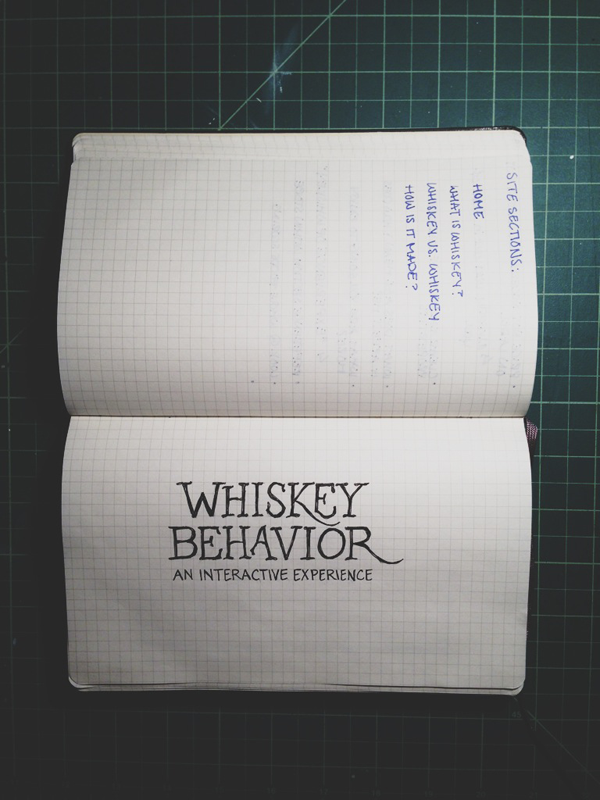 SITE SECTIONS:
HOME
WHAT IS WHISKEY?
WHISKEY VS. WHISKEY
HOW IS IT MADE?
WHISKEY
BEHAVIOR
AN INTERACTIVE EXPERIENCE